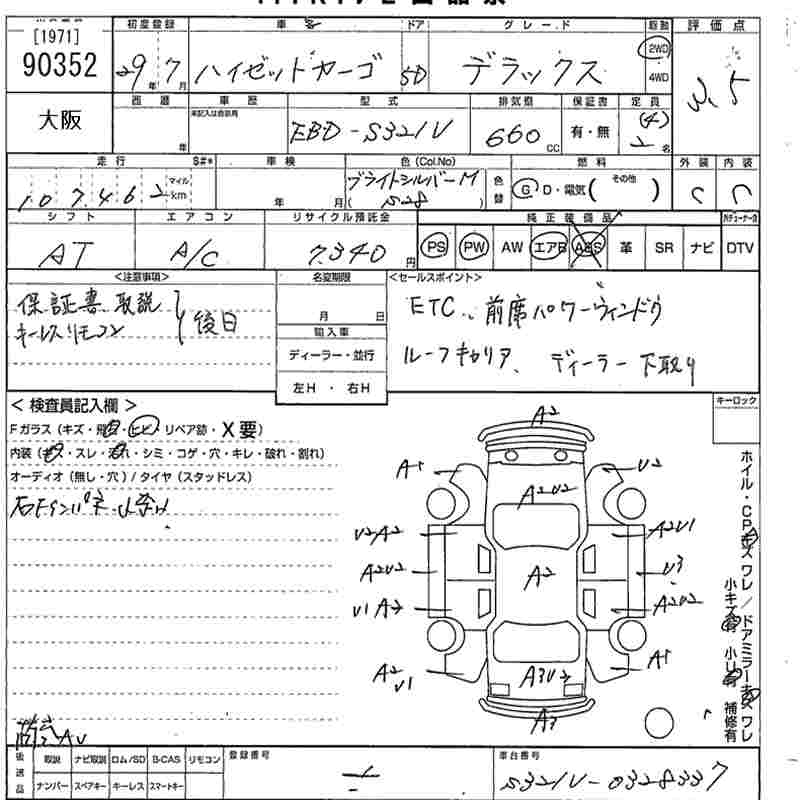 初度登録 車名 ドア グレード 駆動 評価点
[1971]
90352
29年 7月 ハイゼットカーゴ 5D デラックス 2WD 4WD 3.5
大阪
西暦 車歴 型式 排気量 保証書 定員
未記入は自家用
年 EBD-S321V 660cc 有・無 (4) 2名
走行 S#* 車検 色(Col.No) 燃料 外装 内装
107462 マイル km 年 月 ブライトシルバーM (S28) 色替 G D・電気( その他 ) C C
シフト エアコン リサイクル預託金 純正装備品
AT A/C 7340円 PS PW AW エアB ABS 革 SR ナビ DTV
<注意事項> 名変期限 <セールスポイント>
保証書 取説
キーレスリモコン
後日
月 日
輸入車
ディーラー・並行
左H ・ 右H
ETC、前席パワーウィンドウ
ルーフキャリア、ディーラー下取り
<検査員記入欄>
Fガラス(キズ・飛石・ヒビ・リペア跡・X要)
内装(キズ・スレ・汚れ・シミ・コゲ・穴・キレ・破れ・割れ)
オーディオ(無し・穴)/タイヤ(スタッドレス)
キーロック
A2
A1 U2
A2U2
U2A2 A2U1
A2U2 A2 U3
U1A2 A2U2
A2U1 A1
A3U2
A3
ホイル・CPキズ ワレ/ドアミラーキズ ワレ
小キズ有 小U有 補修有
後送品 取説 ナビ取説 ロム/SD B-CAS リモコン 登録番号 車台番号
ナンバー スペアキー キーレス スマートキー S321V-0328337